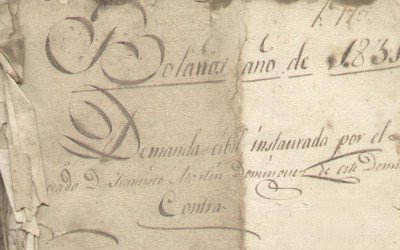 Bolaños año de 183
Demanda cibil instaurada por el
ciado D. Francisco Domingues de este Domi
Contra